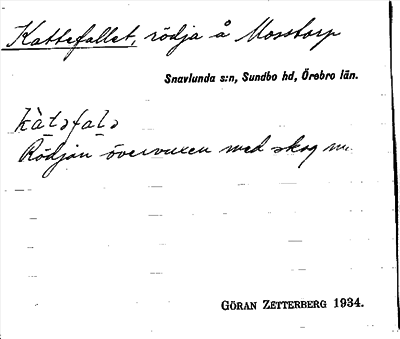 Kattefallet, rödja å Mosstorp
Snavlunda s:n, Sundbo hd, Örebro län.
kàtəfalə
Rödjan övervuxen med skog nu.
GÖRAN ZETTERBERG 1934.